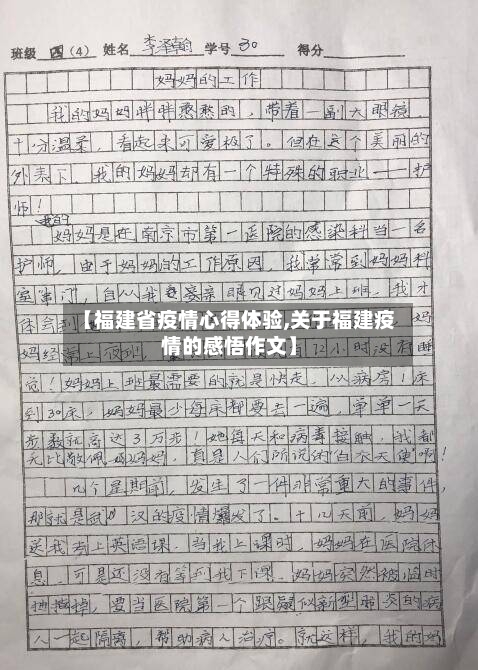 班级 四（4） 姓名 李泽翰 学号 30 得分
妈妈的工作
我的妈妈胖胖憨憨的，带着一副大眼镜，
十分温柔，看起来可爱极了。但在这个美丽的
外表下，我的妈妈却有一个特殊的职业——护
师！
我的
妈妈是在南京市第一医院的感染科当一名
护师，由于妈妈的工作原因，我常常到妈妈科
室串门，自从我亲眼见过妈妈上班，我才
体会到
【福建省疫情心得体验,关于福建疫
情的感悟作文】
妈经常上夜班，12小时没有睡
觉！妈妈上班最需要的就是快走，从病房1床
到30床，妈妈最少每床都要去一遍，单单一天
步数就高达3万步！她每天和病毒接触，我都
无比敬佩妈妈，真是人们所说的“白衣天使”啊！
几个星期前，发生了一件非常重大的事件，
那就是武汉的疫情爆发了。十几天前，妈妈
送我去上英语课，当我上课时，妈妈在医院休
息，可是还没有等到我下课，妈妈突然被临时
要当医院第一个跟疑似新型肺炎的病
人一起隔离，帮助病人治疗。就这样，我的妈